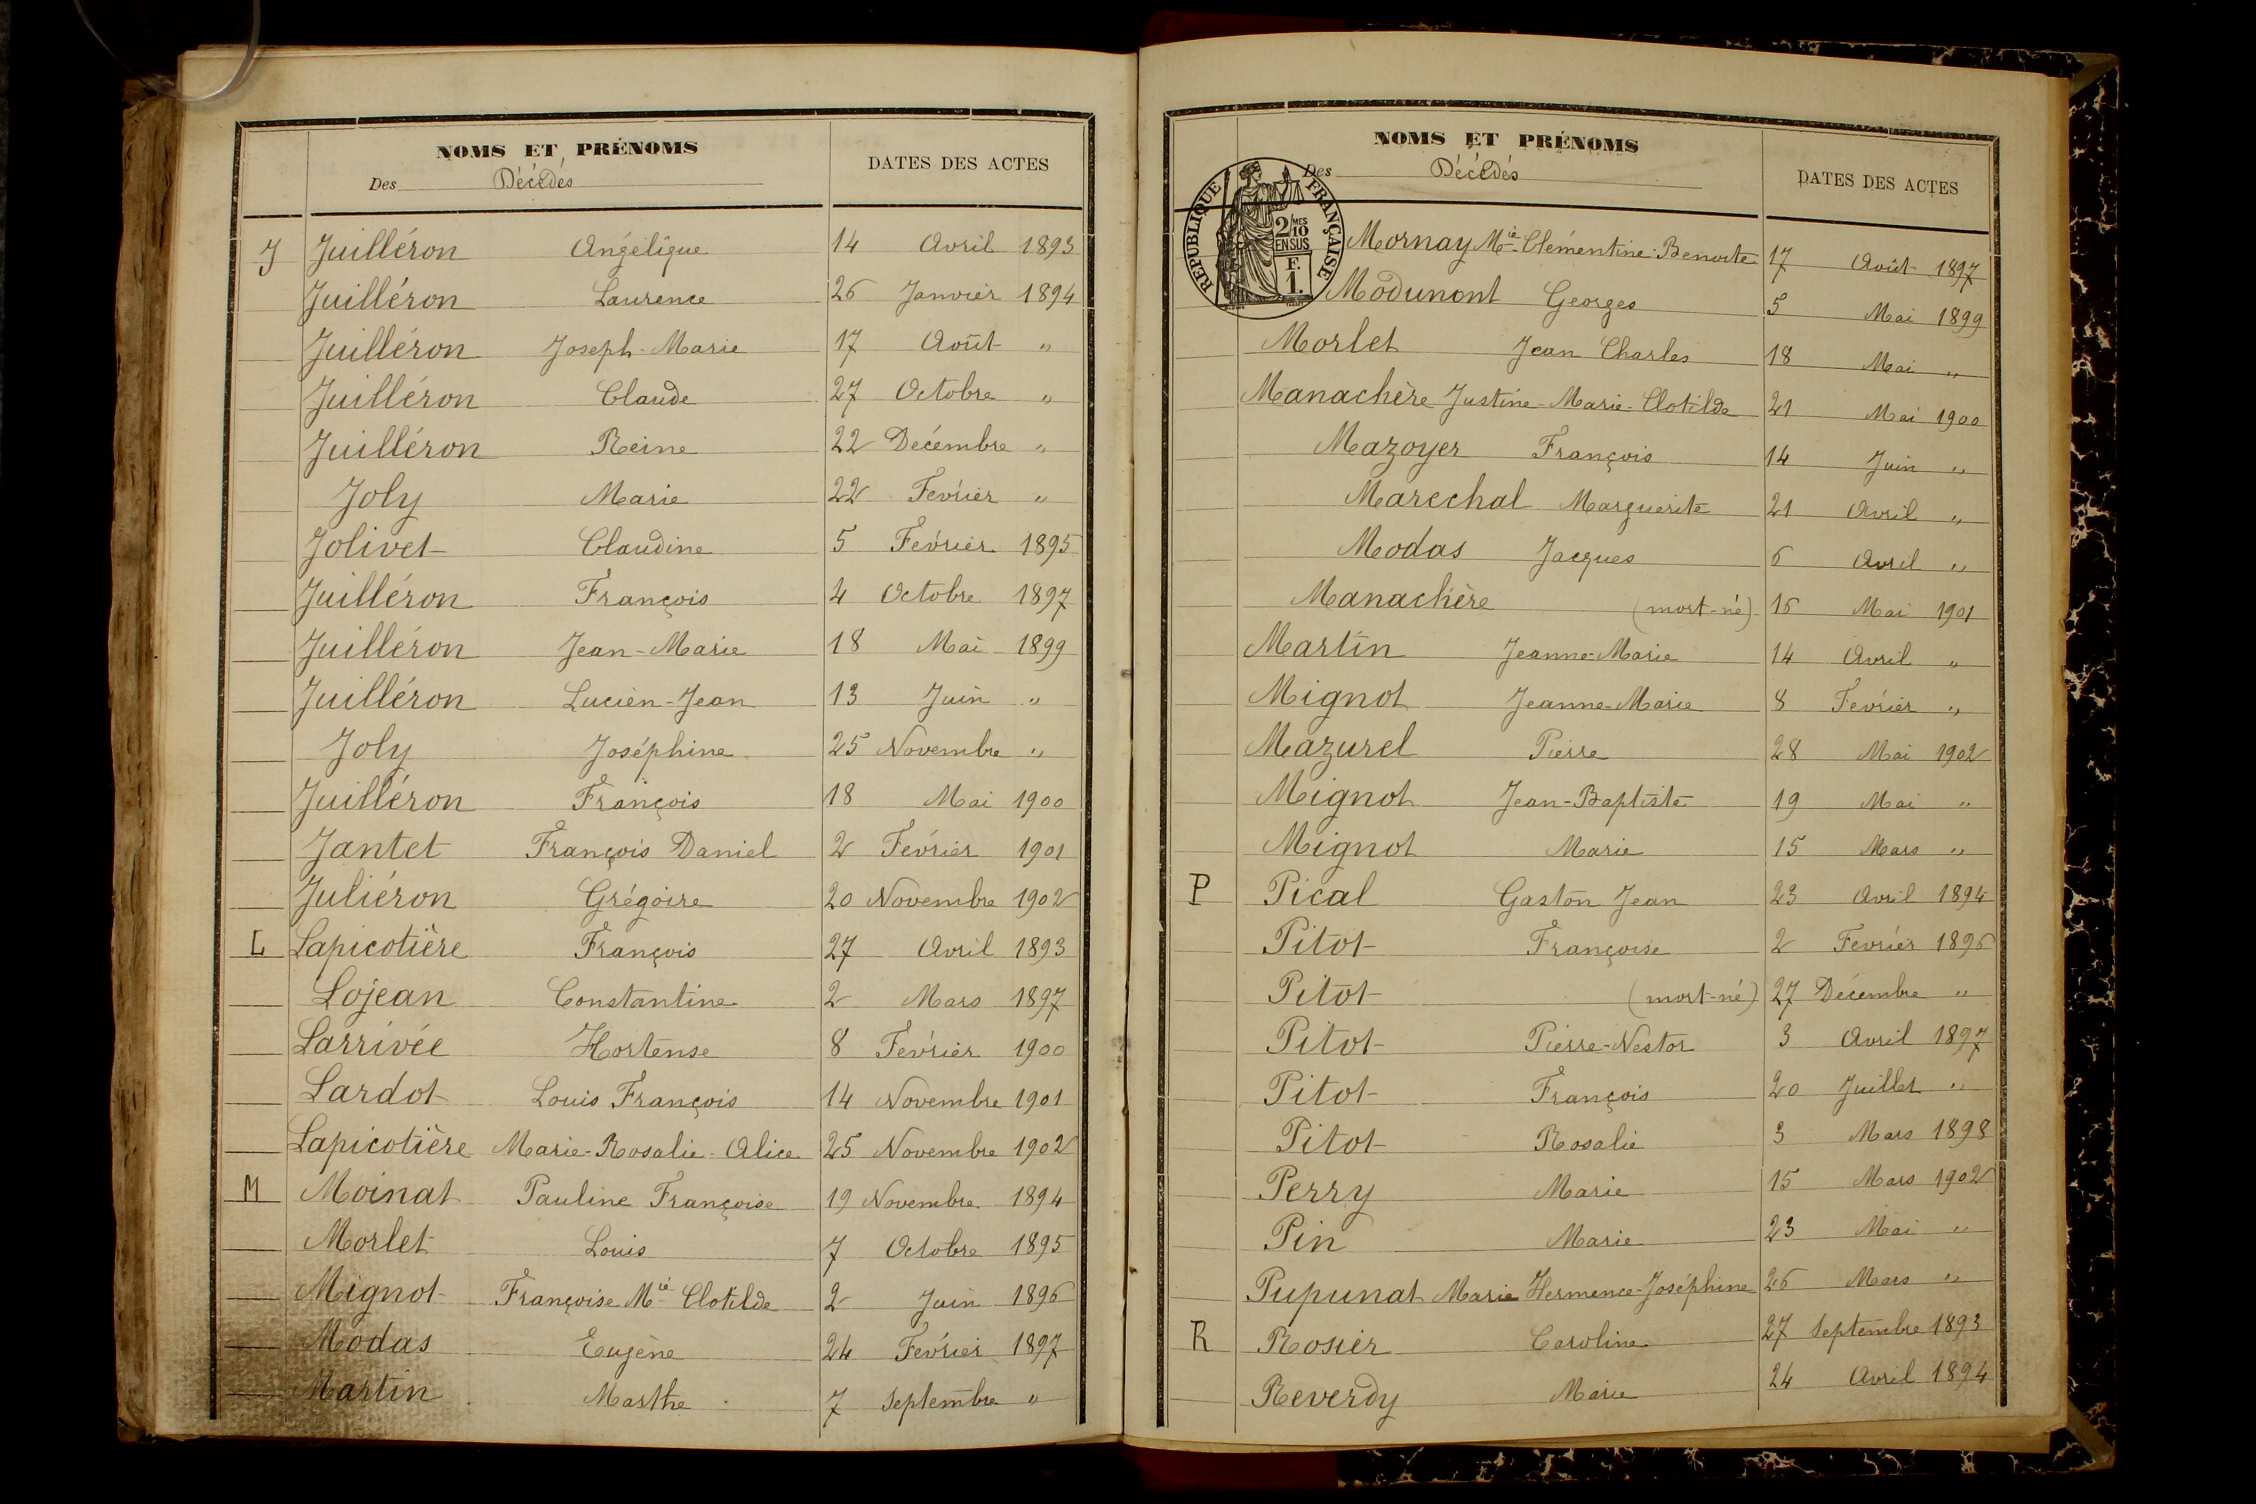 NOMS ET PRÉNOMS
Des Décédés
DATES DES ACTES
J Juilléron Angélique 14 Avril 1893
Juilléron Laurence 26 Janvier 1894
Juilléron Joseph-Marie 17 Août "
Juilléron Claude 27 Octobre "
Juilléron Reine 22 Décembre "
Joly Marie 22 Février "
Jolivet Claudine 5 Février 1895
Juilléron François 4 Octobre 1897
Juilléron Jean-Marie 18 Mai 1899
Juilléron Lucien-Jean 13 Juin "
Joly Joséphine 25 Novembre "
Juilléron François 18 Mai 1900
Jantet François Daniel 2 Février 1901
Juliéron Grégoire 20 Novembre 1902
L Lapicotière François 27 Avril 1893
Lojean Constantine 2 Mars 1897
Larrivée Hortense 8 Février 1900
Lardot Louis François 14 Novembre 1901
Lapicotière Marie-Rosalie-Alice 25 Novembre 1902
M Moinat Pauline Françoise 19 Novembre 1894
Morlet Louis 7 Octobre 1895
Mignot Françoise Mie Clotilde 2 Juin 1896
Modas Eugène 24 Février 1897
Martin Marthe 7 Septembre "
NOMS ET PRÉNOMS
Des Décédés
DATES DES ACTES
RÉPUBLIQUE FRANÇAISE
2/10 MES
EN SUS
F.
1.
Mornay Mie-Clémentine-Benoite 17 Août 1897
Modunont Georges 5 Mai 1899
Morlet Jean Charles 18 Mai "
Manachère Justine-Marie-Clotilde 21 Mai 1900
Mazoyer François 14 Juin "
Marechal Marguerite 21 Avril "
Modas Jacques 6 Avril "
Manachère (mort-né) 16 Mai 1901
Martin Jeanne-Marie 14 Avril "
Mignot Jeanne-Marie 8 Février "
Mazurel Pierre 28 Mai 1902
Mignot Jean-Baptiste 19 Mai "
Mignot Marie 15 Mars "
P Pical Gaston Jean 23 Avril 1894
Pitot Françoise 2 Février 1896
Pitot (mort-né) 27 Décembre "
Pitot Pierre-Nestor 3 Avril 1897
Pitot François 20 Juillet "
Pitot Rosalie 3 Mars 1898
Perry Marie 15 Mars 1902
Pin Marie 23 Mai "
Pupunat Marie Hermence-Joséphine 26 Mars "
R Rosier Caroline 27 Septembre 1893
Reverdy Marie 24 Avril 1894